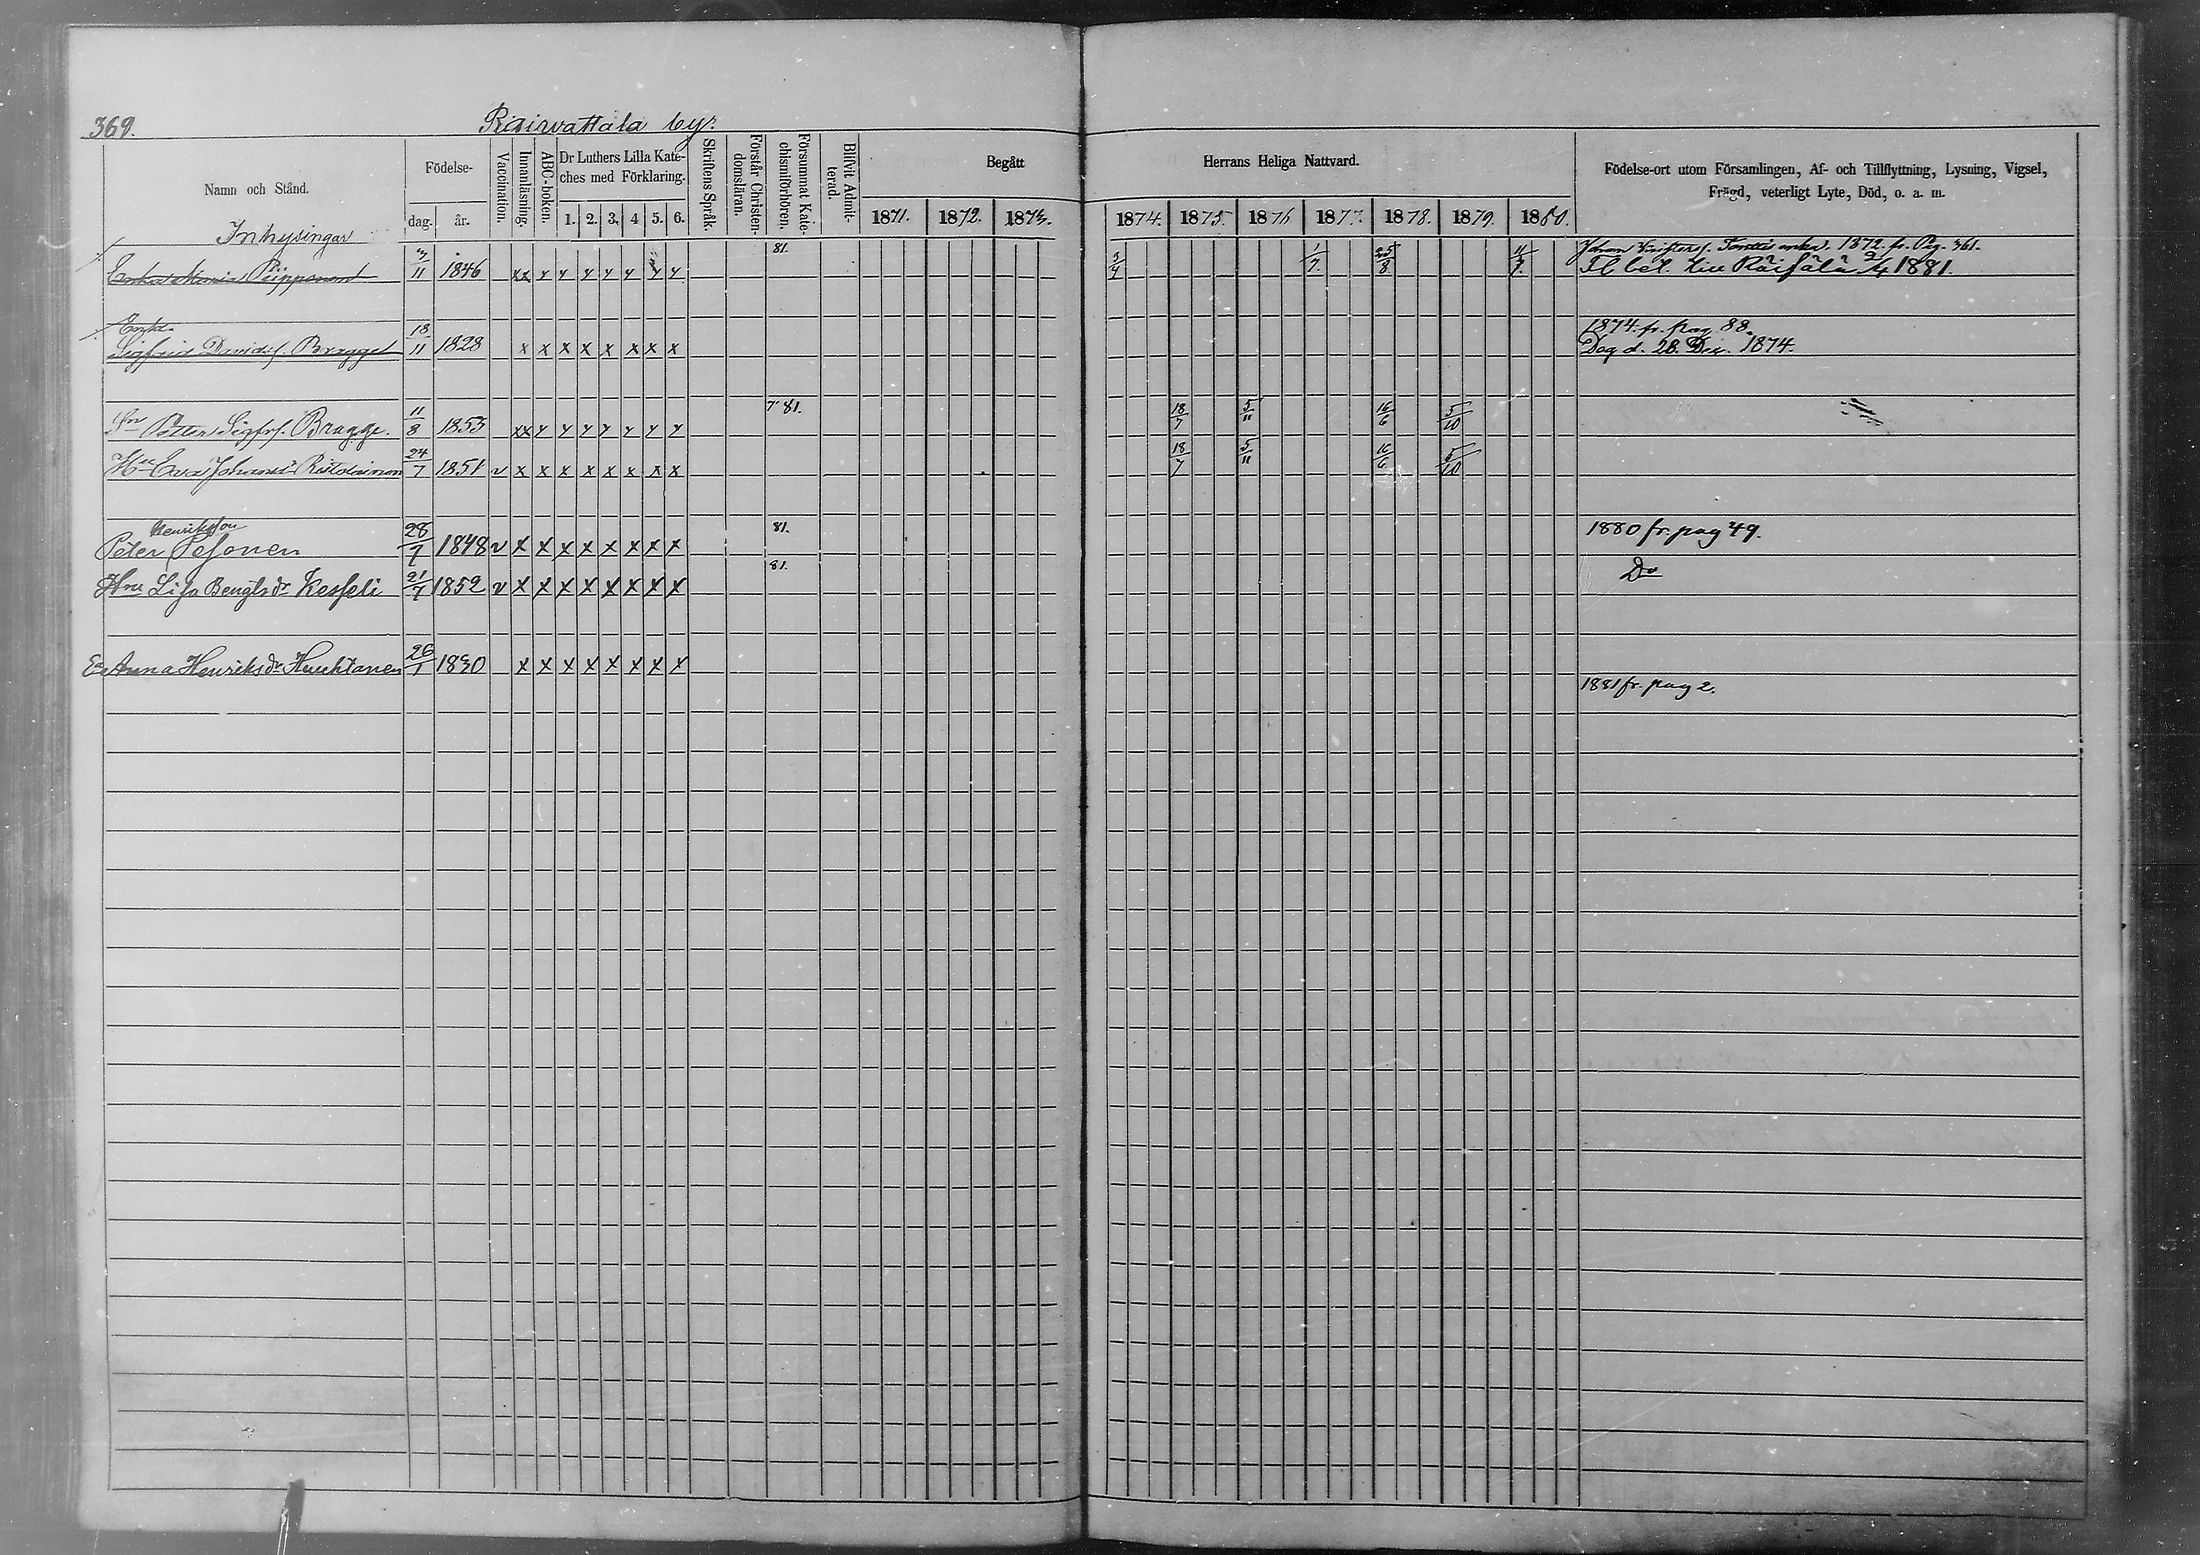 369. Raivattala by.
Namn och Stånd. Födelse- dag. år. Vaccination. Innanläsning. ABC-boken. Dr Luthers Lilla Kateches med Förklaring. 1. 2. 3. 4 5. 6. Skriftens Språk. Förstår Christendomsläran. Försummat Katechismiförhören. Blifvit Admitterad. Begått Herrans Heliga Nattvard. Födelse-ort utom Församlingen, Af- och Tillflyttning, Lysning, Vigsel, Frägd, veterligt Lyte, Död, o. a. m.
1871. 1872. 1873. 1874. 1875. 1876 1877. 1878. 1879. 1880.
Inhysingar
81. Johan 1872. fr. Pag. 361.
Enkan Maria Piipponen 3/11 1846 xx y y y y y y y 3/4 1/7. 25/8 11/7. Fl. bet. till Räisälä 2/4 1881.
Enkl. 1874. fr. pag 88.
Sigfrid Davids. Bragge 18/11 1828 x x x x x x x x Dog d. 28. Dec. 1874.
Sn Petter Sigfrs. Bragge. 11/8 1853 xx y y y y y y y 7 81. 18/7 5/11 16/6 5/10
Hu Eva Johansdr Ristolainen 24/7 1851 v x x x x x x x x 18/7 5/11 16/6 5/10
Henriksson
Peter Pesonen 28/7 1848 v x x x x x x x x 81. 1880 fr. pag 49.
Hru Lisa Bengtsdr Kesseli 21/7 1852 v x x x x x x x x 81. Do
E. Anna Henriksdr Huuhtanen 26/1 1830 x x x x x x x x
1881 fr. pag 2.